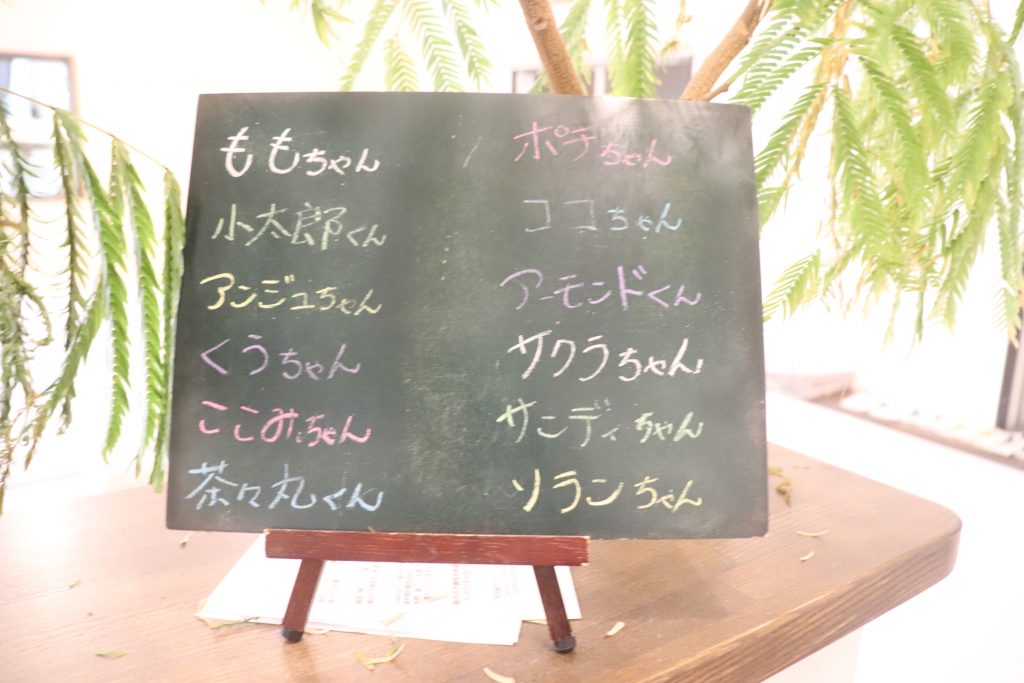 ももちゃん
小太郎くん
アンジュちゃん
くうちゃん
ここみちゃん
茶々丸くん
ポテちゃん
ココちゃん
アーモンドくん
サクラちゃん
サンディちゃん
ソランちゃん